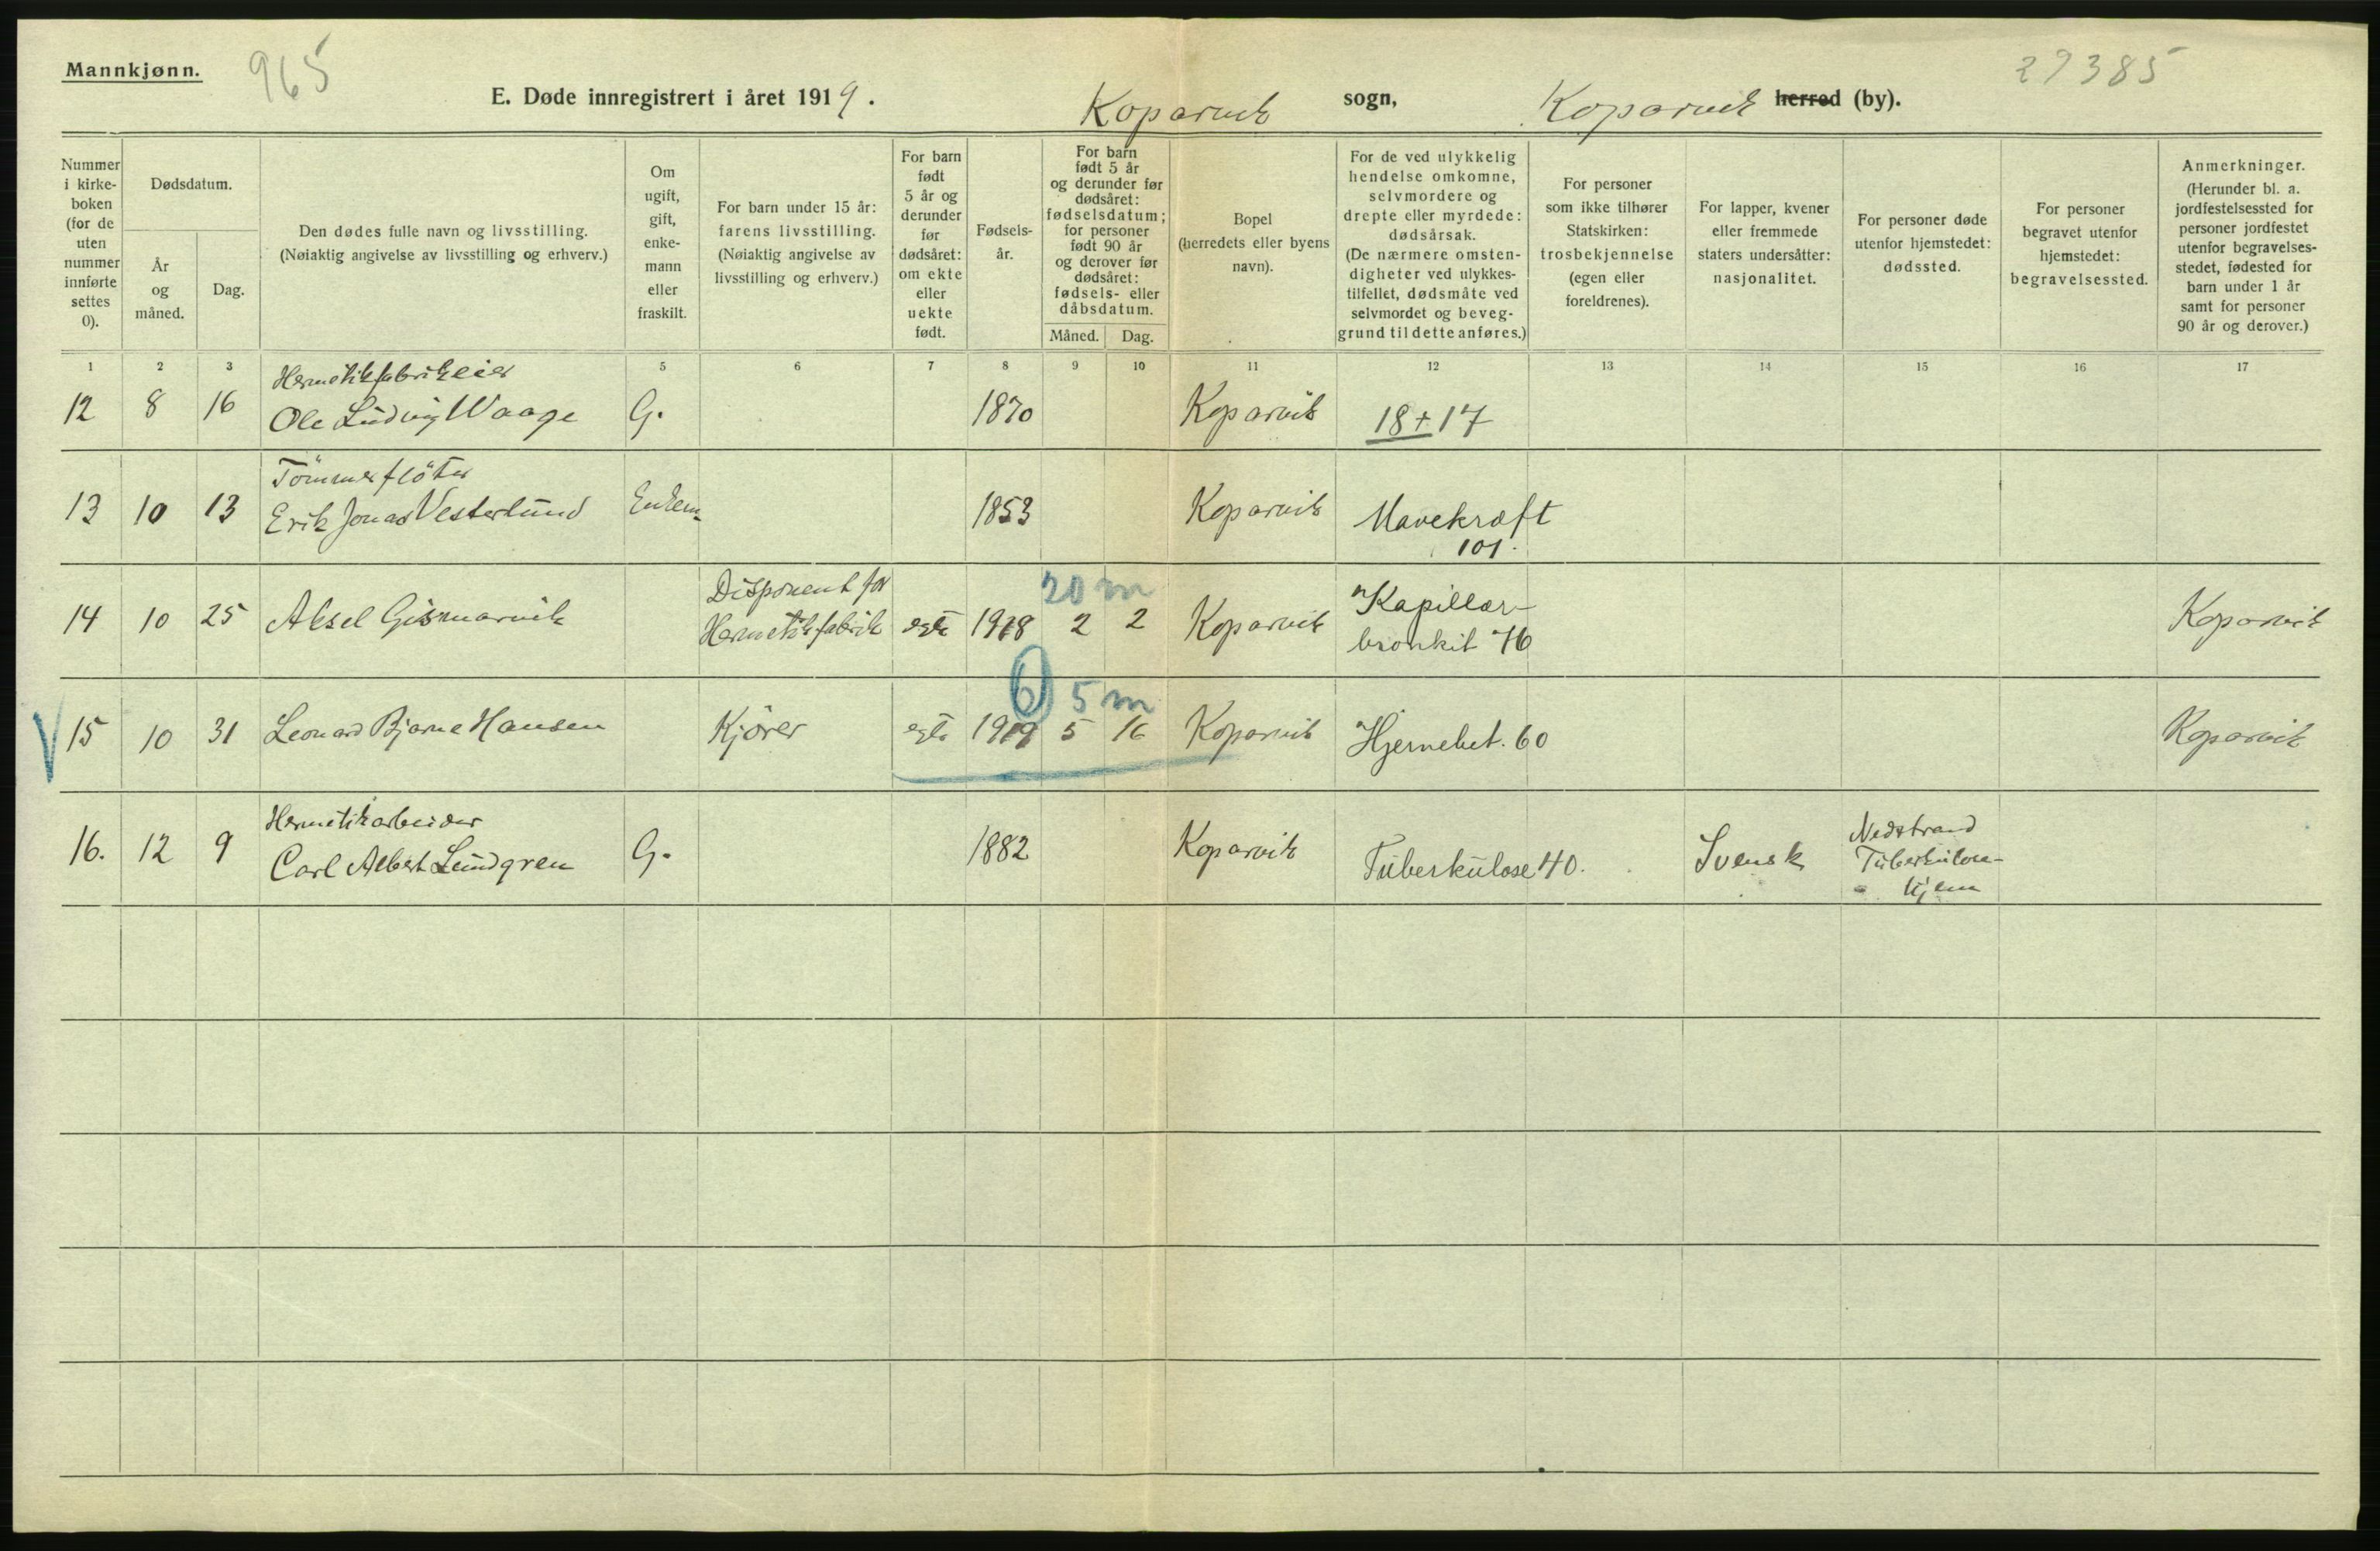 Mannkjønn.
965
27385
E. Døde innregistrert i året 1919.
Koparvik sogn, Koparvik herred (by).
Nummer i kirke-boken (for de uten nummer innførte settes 0).
Dødsdatum.
År og måned.
Dag.
Den dødes fulle navn og livsstilling.
(Nøiaktig angivelse av livsstilling og erhverv.)
Om ugift, gift, enke-mann eller fraskilt.
For barn under 15 år: farens livsstilling.
(Nøiaktig angivelse av livsstilling og erhverv.)
For barn født 5 år og derunder før dødsåret: om ekte eller uekte født.
Fødsels-år.
For barn født 5 år og derunder før dødsåret: fødselsdatum; for personer født 90 år og derover før dødsåret: fødsels- eller dåbsdatum.
Måned.
Dag.
Bopel (herredets eller byens navn).
For de ved ulykkelig hendelse omkomne, selvmordere og drepte eller myrdede: dødsårsak.
(De nærmere omsten-digheter ved ulykkes-tilfellet, dødsmåte ved selvmordet og beveg-grund til dette anføres.)
For personer som ikke tilhører Statskirken: trosbekjennelse (egen eller foreldrenes).
For lapper, kvener eller fremmede staters undersåtter: nasjonalitet.
For personer døde utenfor hjemstedet: dødssted.
For personer begravet utenfor hjemstedet: begravelsessted.
Anmerkninger.
(Herunder bl. a. jordfestelsessted for personer jordfestet utenfor begravelses-stedet, fødested for barn under 1 år samt for personer 90 år og derover.)
1 2 3 5 6 7 8 9 10 11 12 13 14 15 16 17
Hermetikfabrikeier
12 8 16 Ole Ludvig Waage G. 1870 Koparvik 18+17
Tömmerflöter
13 10 13 Erik Jonas Vesterlund Enkem. 1853 Koparvik Mavekræft
101.
Disponent for 20 m Kapillær-
14 10 25 Aksel Gismarvik Hermetikfabrik egte 1918 2 2 Koparvik bronkit 76 Koparvik
6 5 m
15 10 31 Leonard Bjarne Hansen Kjörer egte 1919 5 16 Koparvik Hjernebet. 60 Koparvik
Hermetikarbeider Nedstrand
16. 12 9 Carl Albert Lundgren G. 1882 Koparvik Tuberkulose 40. Svensk Tuberkulose-
hjem